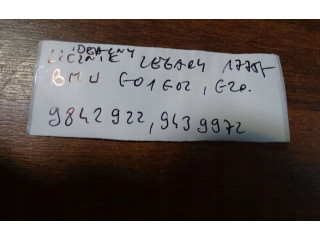 IDEALNY
LICZNIK ZEGARY 1770,-
BMW G01 G02, G20.
9842922, 9439972